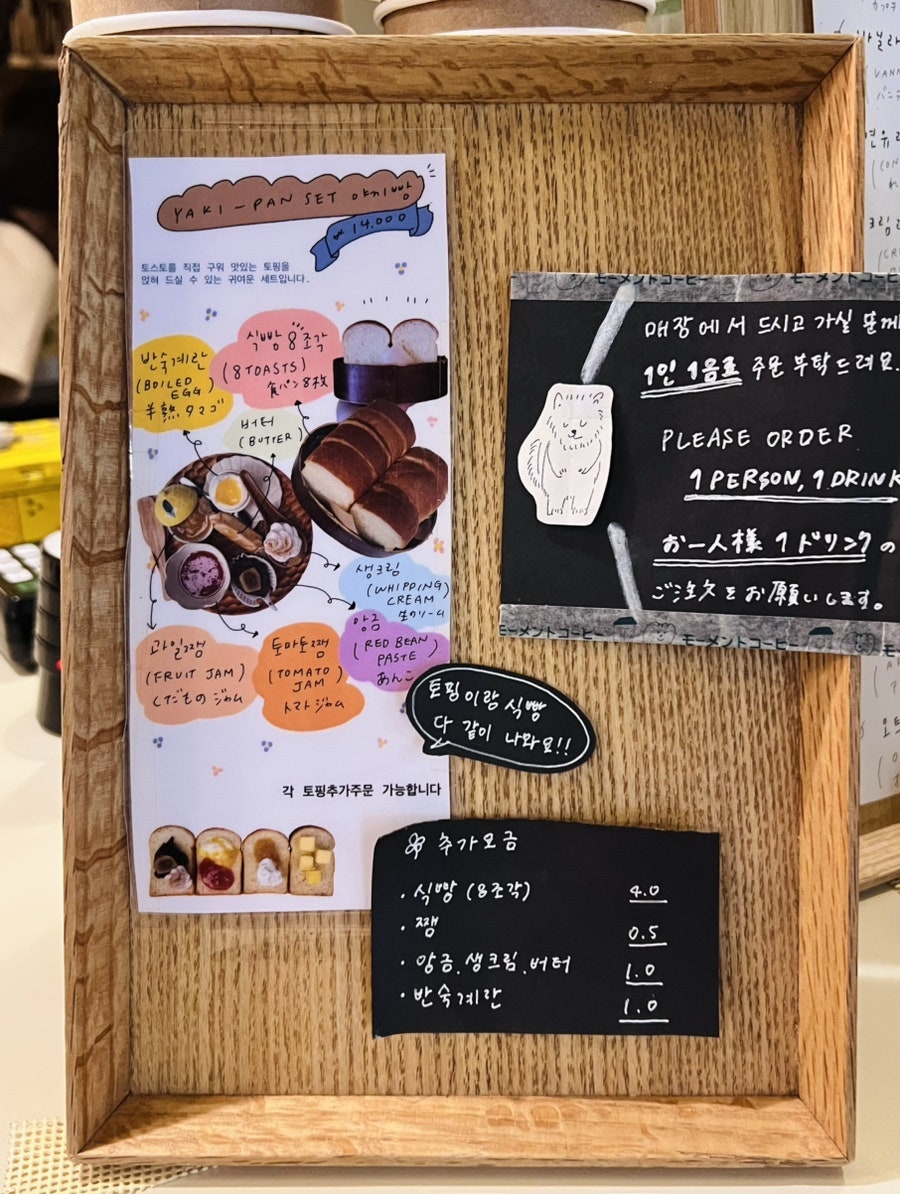 YAKI-PAN SET 야끼빵
₩ 14.000
토스트를 직접 구워 맛있는 토핑을
얹혀 드실 수 있는 귀여운 세트입니다.
반숙계란
(BOILED
EGG)
半熟タマゴ
식빵 8조각
(8TOASTS)
食パン8枚
버터
(BUTTER)
생크림
(WHIPPING)
CREAM
生クリーム
앙금
(RED BEAN
PASTE)
あんこ
과일쨈
(FRUIT JAM)
くだもの ジャム
토마토쨈
(TOMATO
JAM
トマトジャム
각 토핑추가주문 가능합니다
토핑이랑 식빵
다 같이 나와요!!
추가요금
· 식빵 (8조각) 4.0
· 쨈 0.5
· 앙금.생크림.버터 1.0
· 반숙계란 1.0
モーメントコーヒー
매장에서 드시고 가실 분께
1인 1음료 주문 부탁드려요.
PLEASE ORDER
1 PERSON, 1 DRINK
お一人様 1ドリンクの
ご注文をお願いします。
モーメントコーヒー モーメントコーヒー